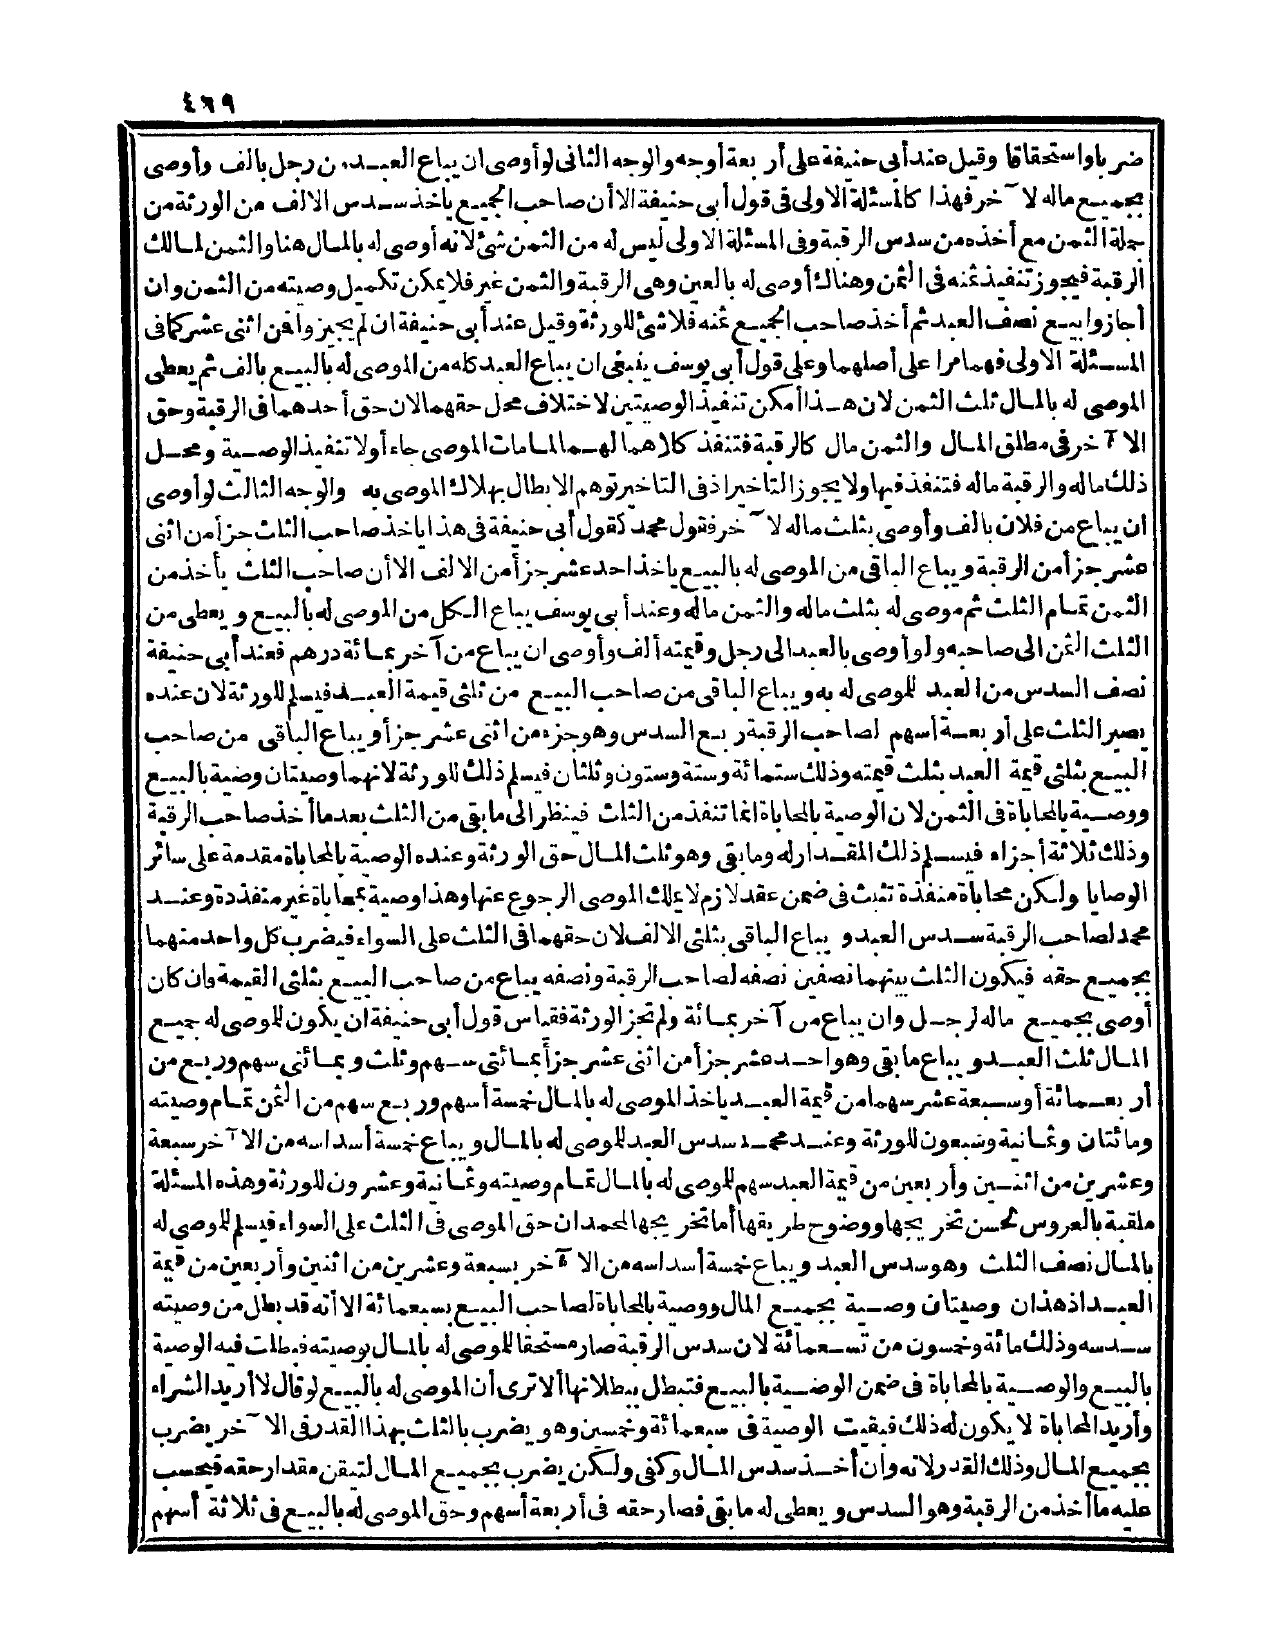 ٤٦٩
ضربا واستحقاقا وقيل عند أبى حنيفة على أربعة أوجه والوجه الثانى لو أوصى ان يباع العبد من رجل بالف وأوصى
بجميع ماله لآخر فهذا كالمسئلة الاولى فى قول أبى حنيفة الا أن صاحب الجميع يأخذ سدس الالف من الورثة من
جملة الثمن مع أخذه من سدس الرقبة وفى المسئلة الاولى ليس له من الثمن شئ لانه أوصى له بالمال هنا والثمن لمالك
الرقبة فيجوز تنفيذ ثمنه فى الثمن وهناك أوصى له بالعين وهى الرقبة والثمن غير فلا يمكن تكميل وصيته من الثمن وان
أجازوا بيع نصف العبد ثم أخذ صاحب الجميع ثمنه فلا شئ للورثة وقيل عند أبى حنيفة ان لم يجيزوا فمن اثنى عشر كما فى
المسئلة الاولى فهما مرا على أصلهما وعلى قول أبى يوسف ينبغى ان يباع العبد كله من الموصى له بالبيع بالف ثم يعطى
الموصى له بالمال ثلث الثمن لان هذا أمكن تنفيذ الوصيتين لاختلاف محل حقهما لان حق أحدهما فى الرقبة وحق
الآخر فى مطلق المال والثمن مال كالرقبة فتنفذ كلاهما لهما لمامات الموصى جاء أولا تنفيذ الوصية ومحل
ذلك ماله والرقبة ماله فتنفذ فيها ولا يجوز التاخير اذ فى التاخير توهم الابطال بهلاك الموصى به والوجه الثالث لو أوصى
ان يباع من فلان بالف وأوصى بثلث ماله لآخر فقول محمد كقول أبى حنيفة فى هذا ياخذ صاحب الثلث جزأ من اثنى
عشر جزأ من الرقبة ويباع الباقى من الموصى له بالبيع ياخذ احد عشر جزأ من الالف الا أن صاحب الثلث يأخذ من
الثمن تمام الثلث ثم موصى له بثلث ماله والثمن ماله وعند أبى يوسف يباع الكل من الموصى له بالبيع ويعطى من
الثلث الثمن الى صاحبه ولو أوصى بالعبد الى رجل وقيمته ألف وأوصى ان يباع من آخر بمائة درهم فعند أبى حنيفة
نصف السدس من العبد للموصى له به ويباع الباقى من صاحب البيع من ثلثى قيمة العبد فيسلم للورثة لان عنده
يصير الثلث على أربعة أسهم لصاحب الرقبة ربع السدس وهو جزء من اثنى عشر جزأ ويباع الباقى من صاحب
البيع بثلثى قيمة العبد بثلث قيمته وذلك ستمائة وستة وستون وثلثان فيسلم ذلك للورثة لانهما وصيتان وصية بالبيع
ووصية بالمحاباة فى الثمن لان الوصية بالمحاباة انما تنفذ من الثلث فينظر الى ما بقى من الثلث بعد ما أخذ صاحب الرقبة
وذلك ثلاثة أجزاء فيسلم ذلك المقدار له وما بقى وهو ثلث المال حق الورثة وعنده الوصية بالمحاباة مقدمة على سائر
الوصايا ولكن محاباة منفذة تثبت فى ضمن عقد لازم لا يملك الموصى الرجوع عنها وهذا وصية بمحاباة غير متفذدة وعند
محمد لصاحب الرقبة سدس العبد و يباع الباقى بثلثى الالف لان حقهما فى الثلث على السواء فيضرب كل واحد منهما
بجميع حقه فيكون الثلث بينهما نصفين نصفه لصاحب الرقبة ونصفه يباع من صاحب البيع بثلثى القيمة وان كان
أوصى بجميع ماله لرجل وان يباع من آخر بمائة ولم تجز الورثة فقياس قول أبى حنيفة ان يكون للموصى له جميع
المال ثلث العبد و يباع ما بقى وهو احد عشر جزأ من اثنى عشر جزأ بمائتى سهم وثلث و بمائتى سهم وربع من
أربعمائة أو سبعة عشر سهما من قيمة العبد ياخذ الموصى له بالمال خمسة أسهم وربع سهم من الثمن تمام وصيته
ومائتان وثمانية وتبعون للورثة وعند محمد سدس العبد للموصى له بالمال ويباع خمسة أسداسه من الآخر سبعة
وعشرين من اثنين وأربعين من قيمة العبد سهم للموصى له بالمال تمام وصيته وثمانية وعشرون للورثة وهذه المسئلة
ملقبة بالعروس لحسن تخريجها ووضوح طريقها أما تخريجها لمحمد ان حق الموصى فى الثلث على السواء فيسلم للموصى له
بالمال نصف الثلث وهو سدس العبد ويباع خمسة أسداسه من الآخر بسبعة وعشرين من اثنين وأربعين من قيمة
العبد اذ هذان وصيتان وصية بجميع المال ووصية بالمحاباة لصاحب البيع بسبعمائة الا أنه قد بطل من وصيته
سدسه وذلك مائة وخمسون من تسعمائة لان سدس الرقبة صار مستحقا للموصى له بالمال بوصيته فبطلت فيه الوصية
بالبيع والوصية بالمحاباة فى ضمن الوصية بالبيع فتبطل ببطلانها ألا ترى أن الموصى له بالبيع لو قال لا أريد الشراء
وأريد المحاباة لا يكون له ذلك فبقيت الوصية فى سبعمائة وخمسين وهو يضرب بالثلث بهذا القدر فى الآخر يضرب
بجميع المال وذلك القدر لانه وان أخذ سدس المال وكفى ولكن يضرب بجميع المال لتيقن مقدار حقه فيحسب
عليه ما أخذ من الرقبة وهو السدس و يعطى له ما بقى فصار حقه فى أربعة أسهم وحق الموصى له بالبيع فى ثلاثة أسهم